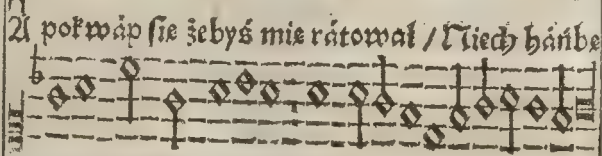 A pokwáp sie żebyś mie rátował / Niech háńbę